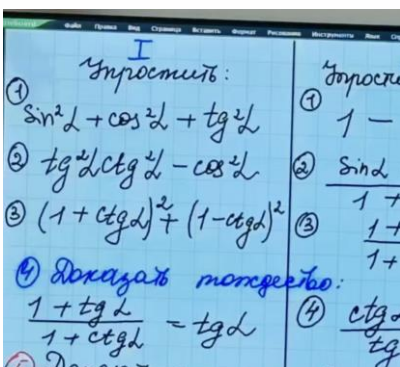 Файл Правка Вид Страница Вставить Формат Рисование Инструменты Язык
I
Упростить:
① sin²α + cos²α + tg²α
② tg²α ctg²α − cos²α
③ (1 + ctgα)² + (1 − ctgα)²
④ Доказать тождество:
1 + tgα / 1 + ctgα = tgα
① 1 −
② sinα / 1 +
③ 1 + / 1 +
④ ctgα / tg